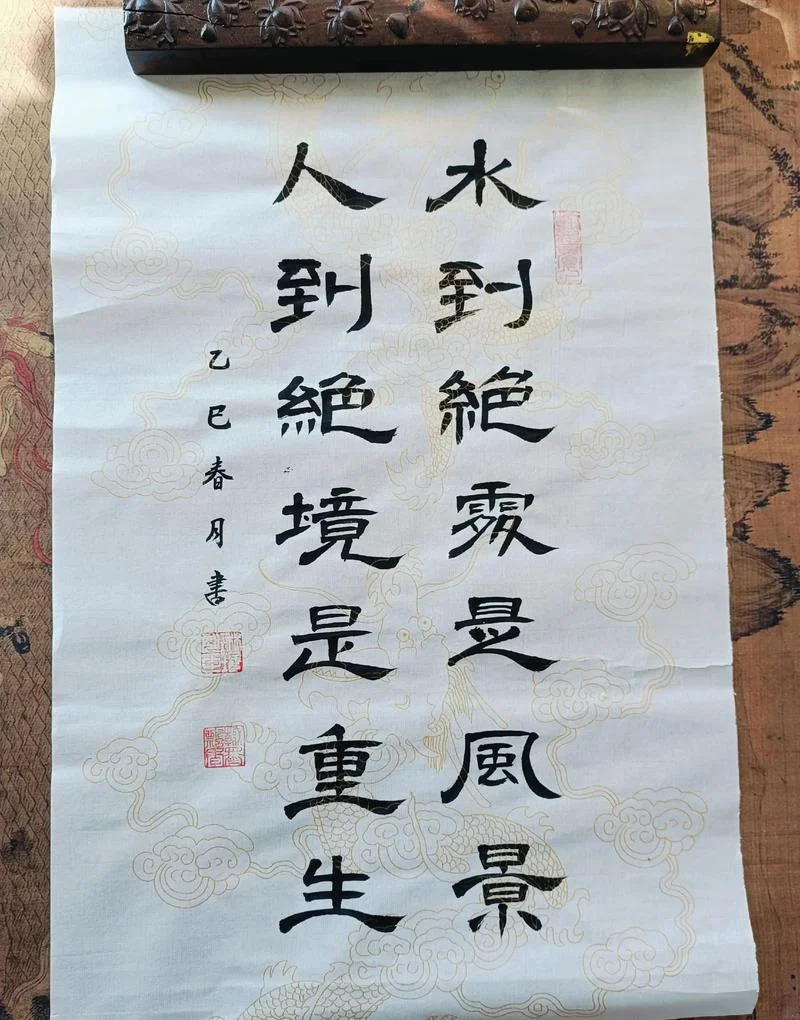 水到絕處是風景
人到絕境是重生
乙巳春月書